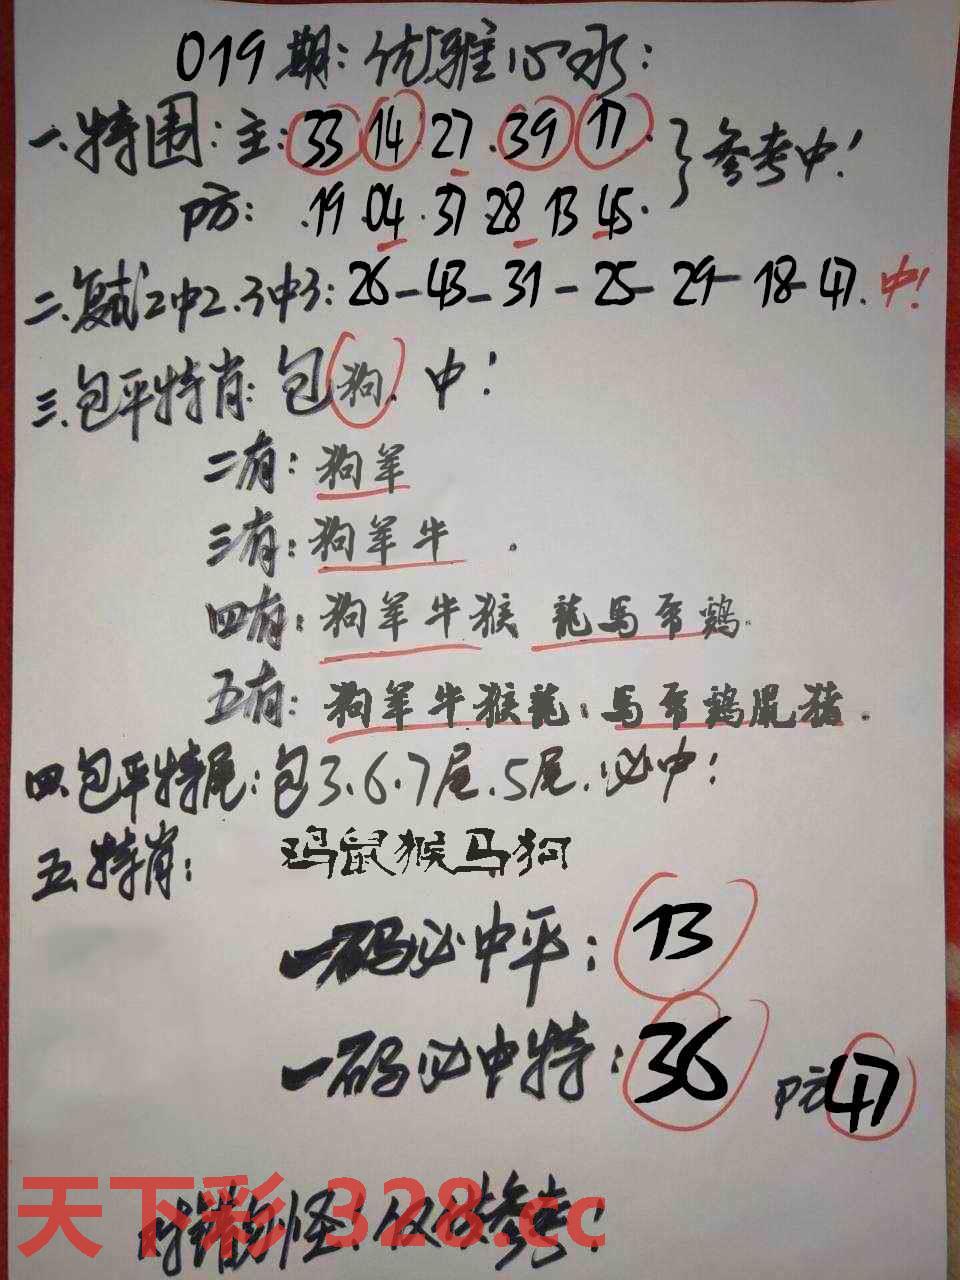 019期:优雅心水:
一.特围:主:33 14 27.39 17. 参考中!
防: .19.04.37 28 13 45.
二.复式2中2.3中3:26-43-31-25-29-18-47.中!
三.包平特肖:包狗.中!
二有:狗羊
三有:狗羊牛.
四有:狗羊牛猴 龍馬兔鶏.
五有:狗羊牛猴龍:馬兔鶏鼠猪.
四.包平特尾:包3.6.7尾.5尾.必中!
五.特肖: 鸡鼠猴马狗
一码必中平:13
一码必中特:36 防47
对错勿怪!仅供参考!
天下彩328.cc